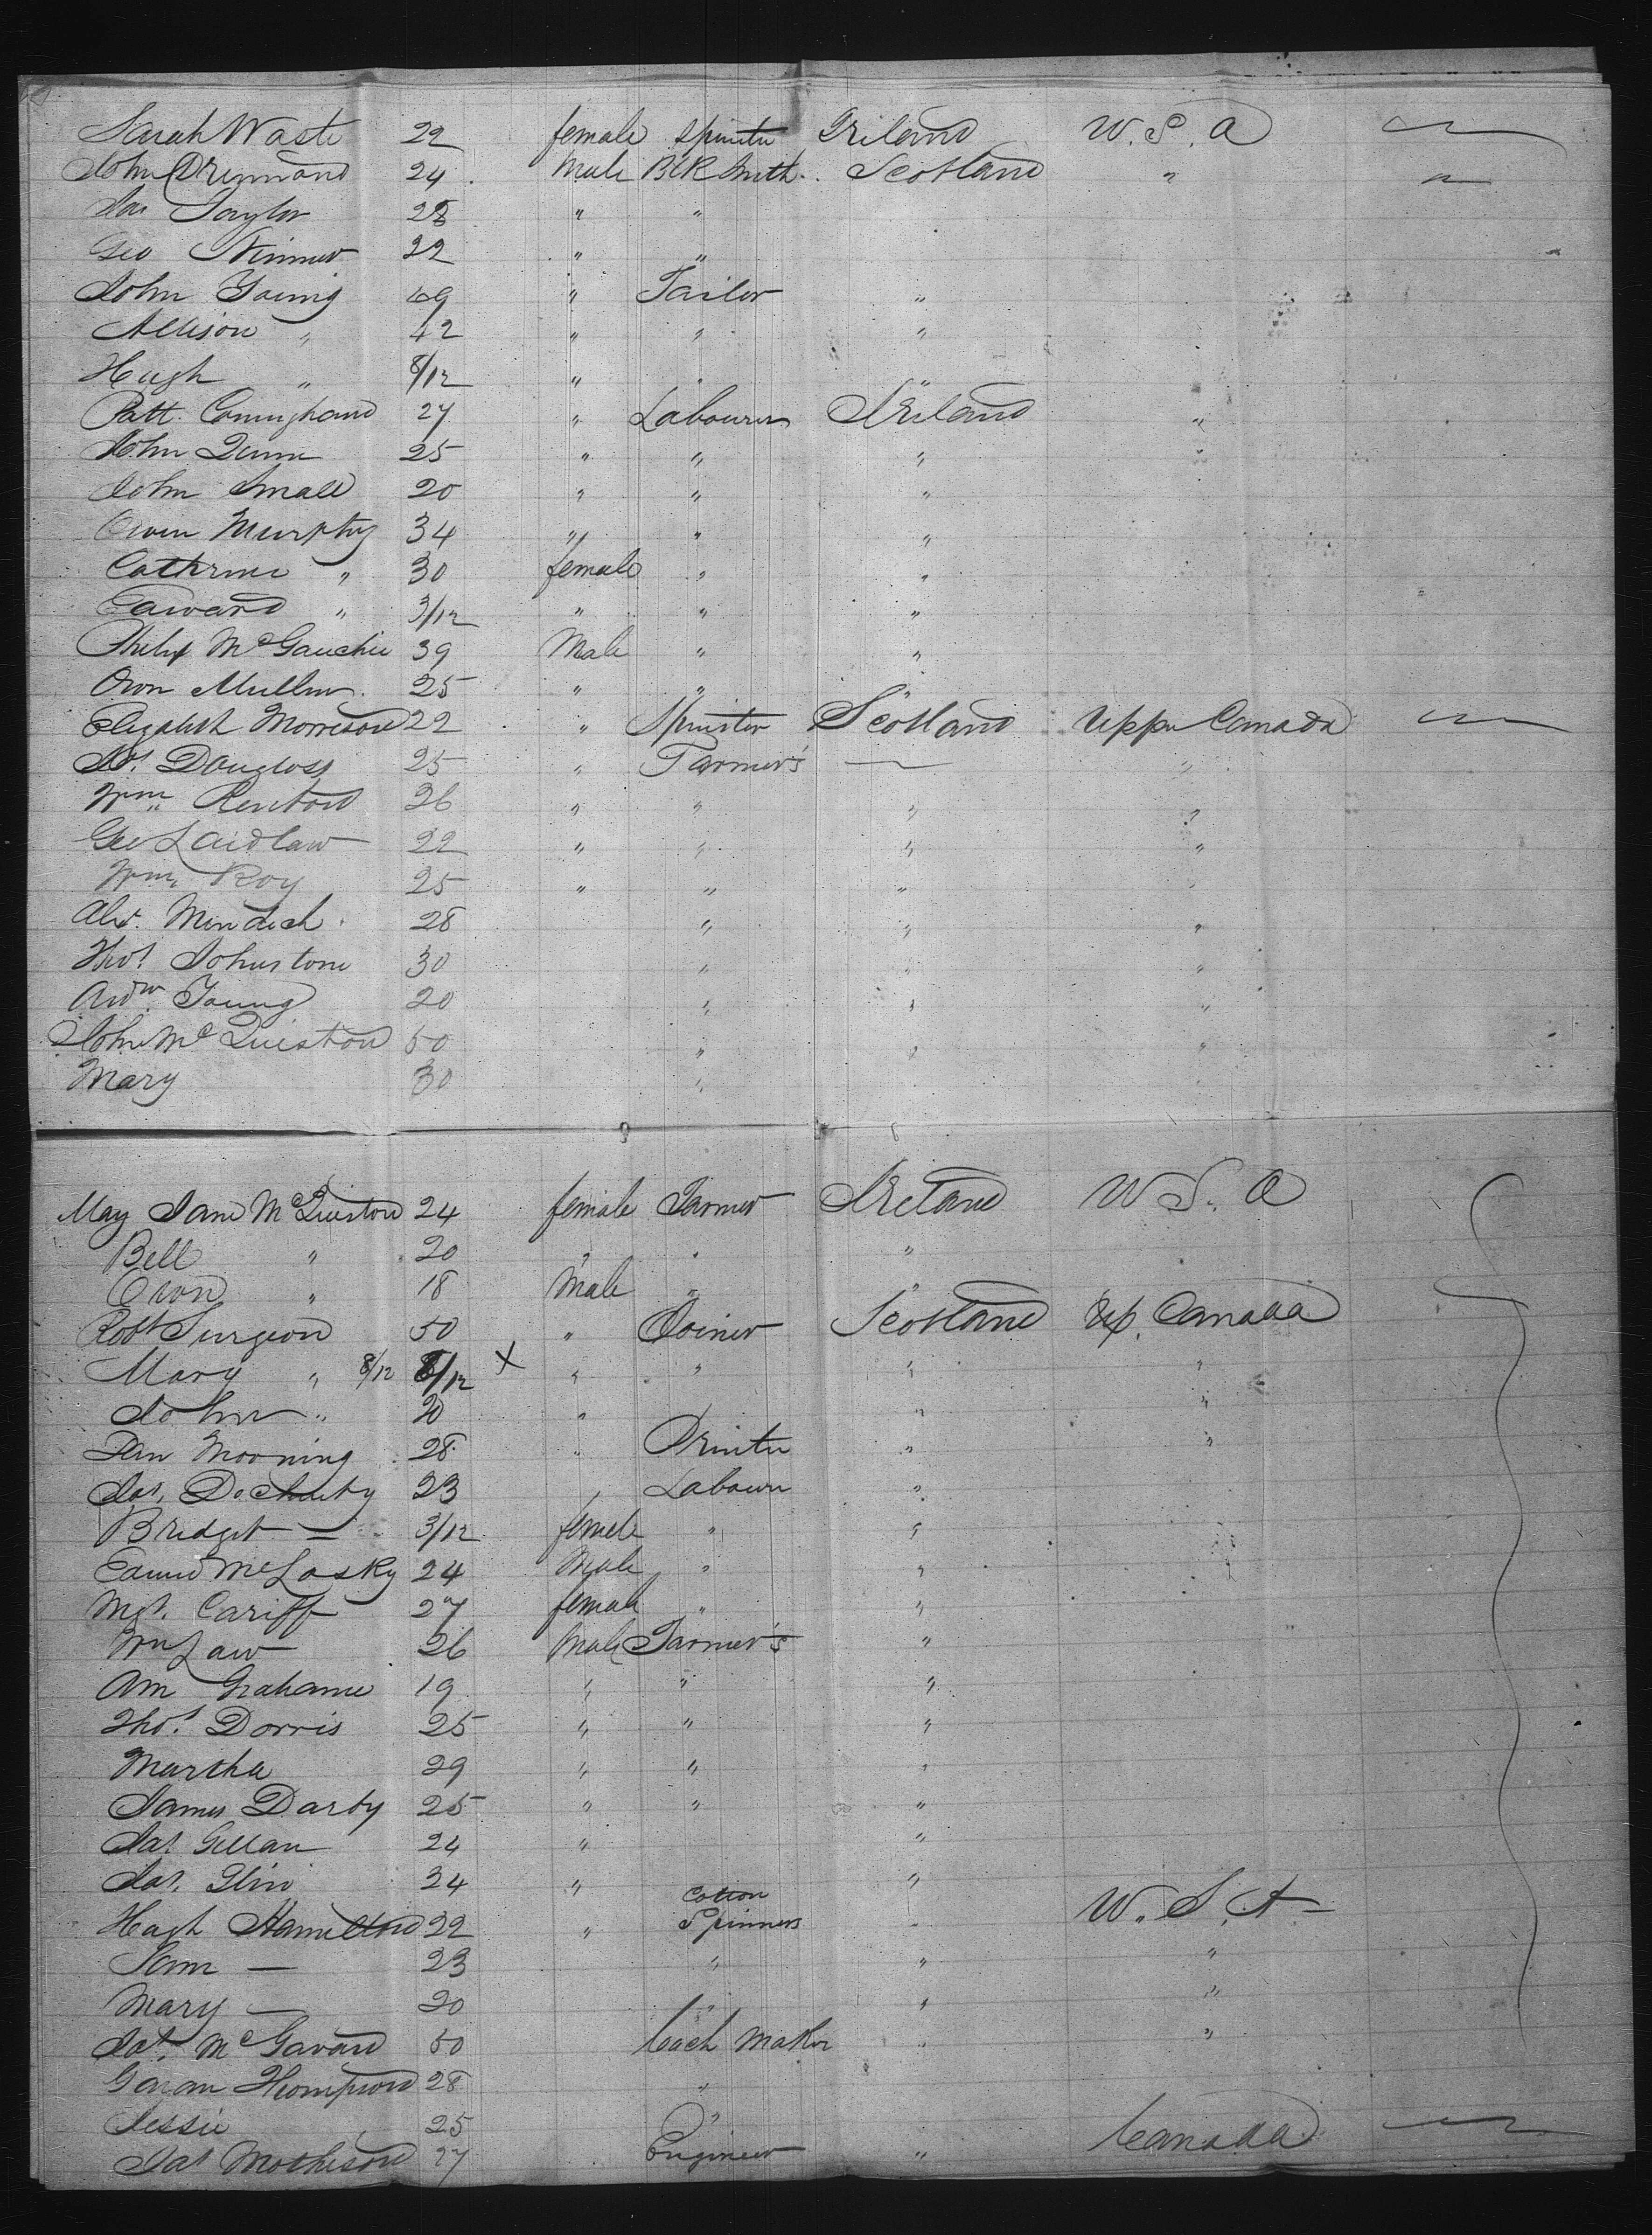 Sarah Waste 22 female Spinster Ireland U.S.A
John Drummond 24 Male Blk Smith Scotland "
Jas Taylor 28 " "
Geo Nimmo 22 " "
John Young 49 " Tailor "
Allison " 42 " " "
Hugh " 8/12 " "
Patt. Coningham 27 " Labourers Ireland "
John Quinn 25 " " "
John Small 20 " " "
Owen Murphy 34 " " "
Cathrine " 30 female " "
Edward " 3/12 " " "
Philip McGauchie 39 Male " "
Owen Mullen 25 " " "
Elizabeth Morrison 22 " Spinster Scotland Upper Canada
Jas. Douglass 25 " Farmer's — "
Wm Renton 26 " " " "
Geo Laidlaw 22 " " " "
Wm Roy 25 " " " "
Alex. 28 " " "
Thos Johnstone 30 " " "
Andw Young 20 " " "
John McQuiston 50 " " "
Mary 30 "
May Jane McQuiston 24 female Farmer Ireland U.S.A
Bell " 20 " " "
Owen " 18 Male " "
Robt Surgeon 50 " Joiner Scotland Up. Canada
Mary " 8/12 8/12 X " " " "
John " 20 " " "
Morning 28 " Printer " "
Jas. Docharty 23 " Labourer "
Bridget — 3/12 female " "
McLosky 24 Male " "
Mgt. Cariff 27 female " "
Wm Law 26 Male Farmer's "
Grahame 19 " " "
Thos. Dorris 25 " " "
Martha 29 " " "
James Darby 25 " " "
Jas. Gillan 24 " "
Jas. Glin 24 " "
Hugh Hamilton 22 " Cotton Spinners U.S.A
Jam — 23 " " "
Mary — 20 " " "
Jas. McGavan 50 Coach Maker " "
Thompson 28 "
Jessie 25 "
Jas Mathison 27 Engineer " Canada